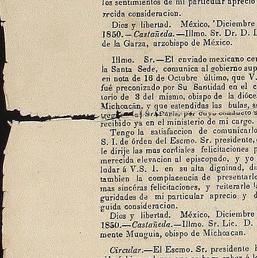 los sentimientos de mi particular aprecio
rrecida consideracion.
Dios y libertad. México, Diciembre
1850.—Castañeda.—Illmo. Sr. Dr. D. L
de la Garza, arzobispo de México.
Illmo. Sr.—El enviado mexicano ce
la Santa Sede, comunica al gobierno sup
en nota de 16 de Octubre último, que V.
fué preconizado por Su Santidad en el c
torio de 3 del mismo, obispo de la dióce
Michoacán, y que estendidas las bulas, s
por su conducto
recibido ya en el ministerio de mi cargo.
Tengo la satisfaccion de comunicarlo
S. I. de órden del Escmo. Sr. presidente,
le dirije las mas cordiales felicitaciones p
merecida elevacion al episcopado, y yo
ludar á V. S. I. en su alta diginidad, de
tambien la complacencia de presentarl
mas sinceras felicitaciones, y reiterarle l
guridades de mi particular aprecio y d
guida consideracion.
Dios y libertad. México, Diciembre
1850.—Castañeda.—Illmo. Sr. Lic. D.
mente Munguia, obispo de Michoacan.
Circular.—El Escmo. Sr. presidente h